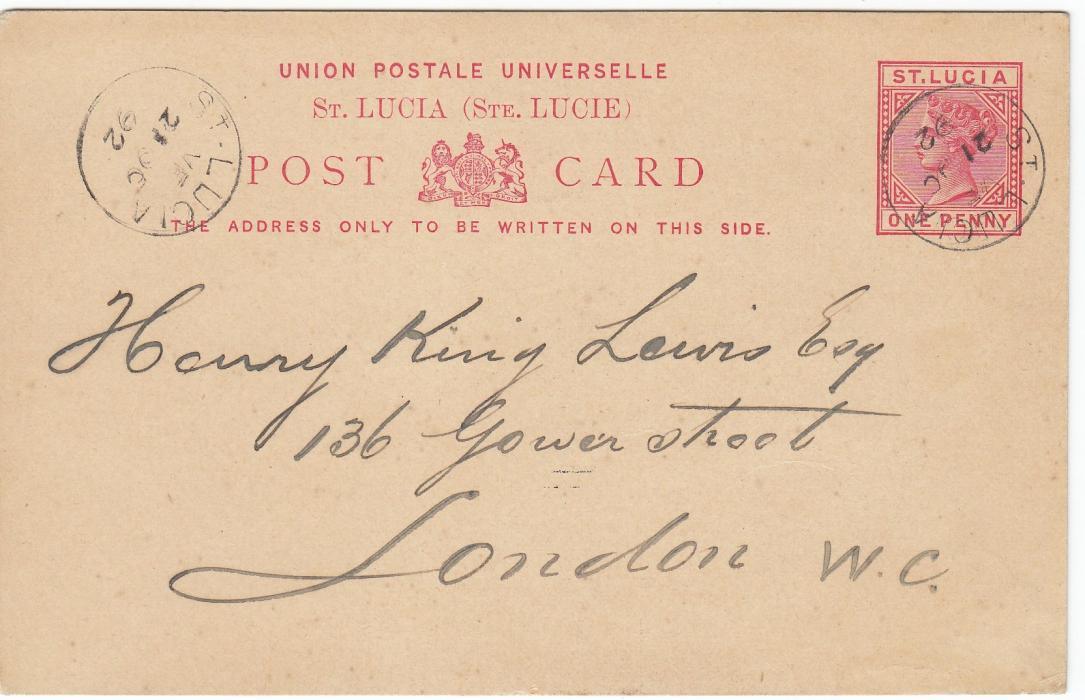 UNION POSTALE UNIVERSELLE
ST. LUCIA (STE. LUCIE)
POST CARD
THE ADDRESS ONLY TO BE WRITTEN ON THIS SIDE.
ST. LUCIA
ONE PENNY
ST. LUCIA
21
92
ST. LUCIA
21
92
Henry King Lewis Esq
136 Gower street
London W.C.